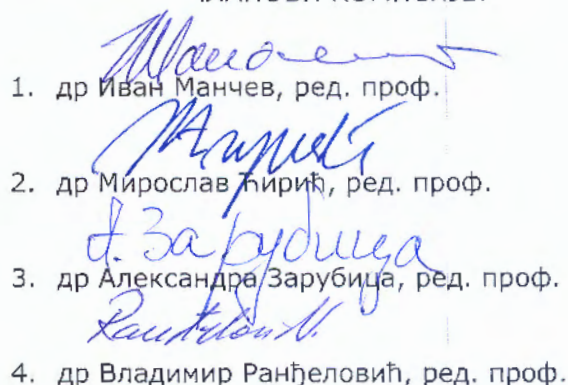 1. др Иван Манчев, ред. проф.
2. др Мирослав Ћирић, ред. проф.
А. Зарубица
3. др Александра Зарубица, ред. проф.
4. др Владимир Ранђеловић, ред. проф.